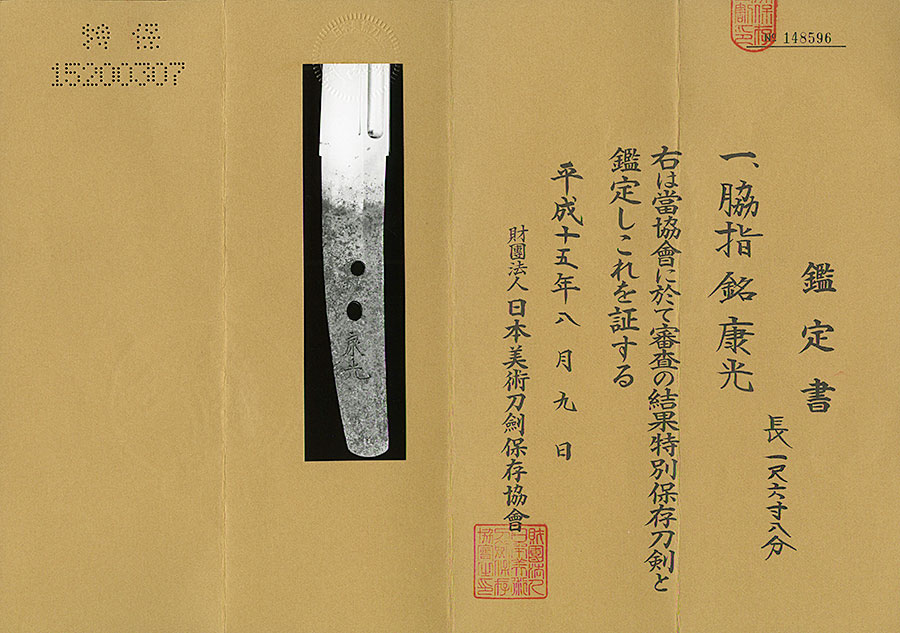 № 148596
鑑定書
長一尺六寸八分
一、脇指 銘 康光
右は當協會に於て審査の結果特別保存刀剣と
鑑定しこれを証する
平成十五年八月九日
財團法人 日本美術刀劍保存協會
康光
特 保
15200307